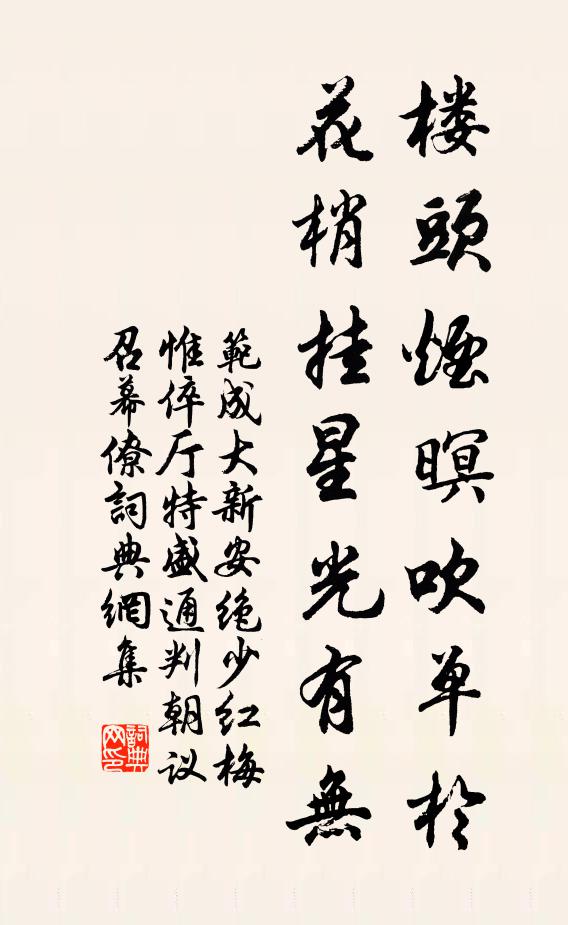 楼頭煙暝吹单於
花梢挂星光有無
範成大新安绝少红梅
惟倅厅特盛通判朝议
召幕僚詞典網集
詞典网印